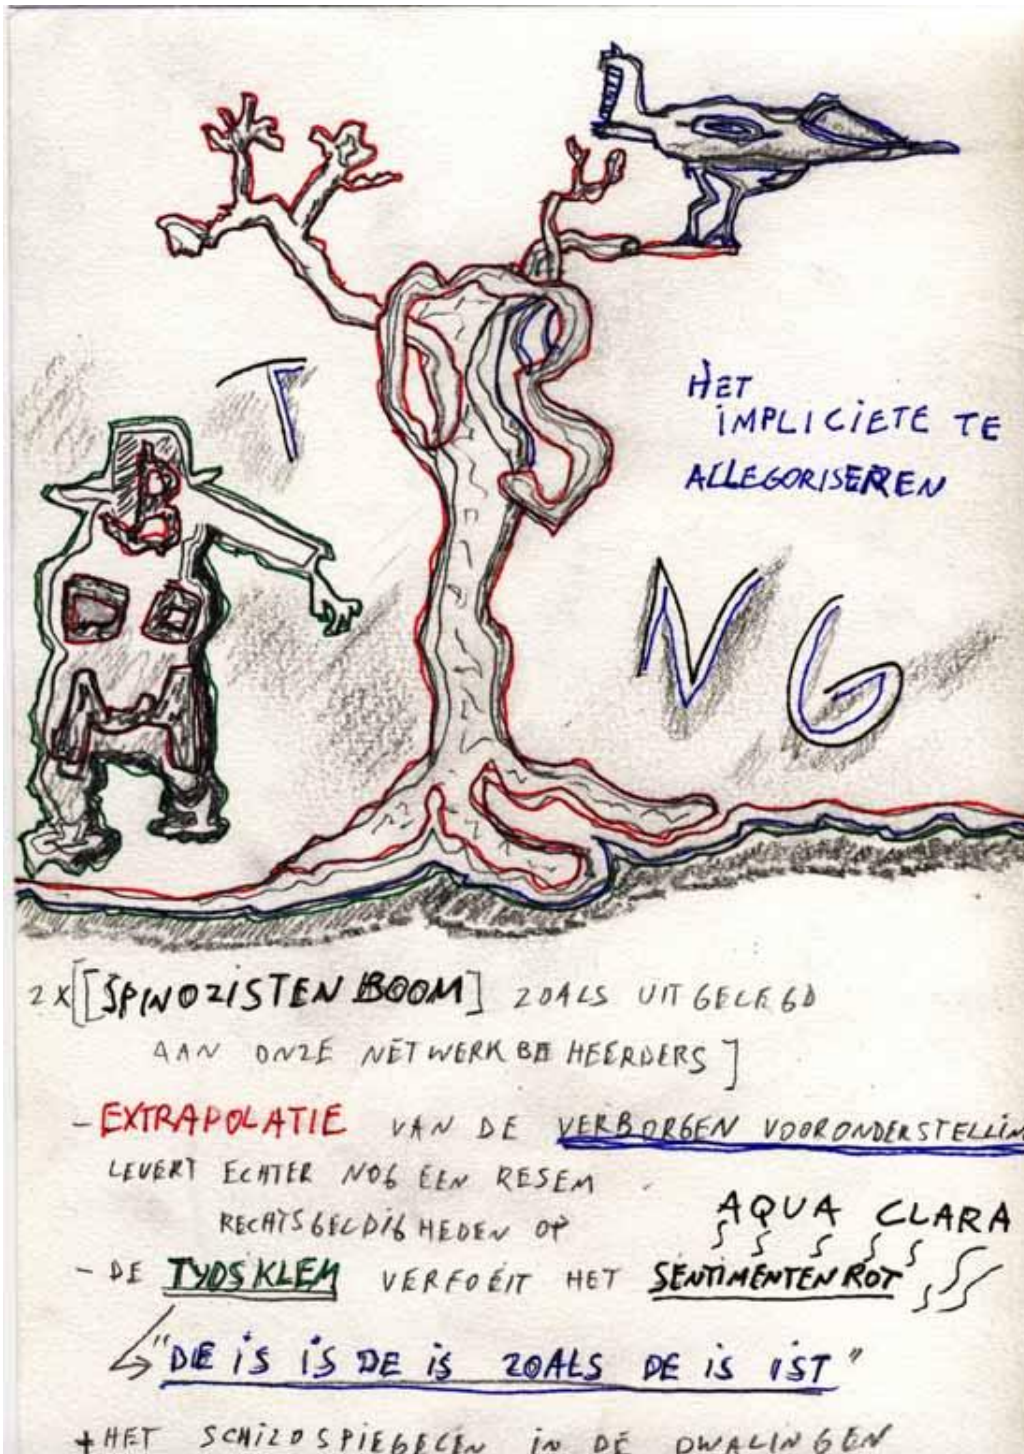 T
HET
IMPLICIETE TE
ALLEGORISEREN
NG
2X[[SPINOZISTEN BOOM] ZOALS UITGELEGD
AAN ONZE NETWERKBEHEERDERS]
- EXTRAPOLATIE VAN DE VERBORGEN VOORONDERSTELLIN
LEVERT ECHTER NOG EEN RESEM
RECHTSGELDIGHEDEN OP
AQUA CLARA
- DE TYDSKLEM VERFOEIT HET SENTIMENTENROT
"DE IS IS DE IS ZOALS DE IS IST"
+ HET SCHILDSPIEGELEN IN DE DWALINGEN